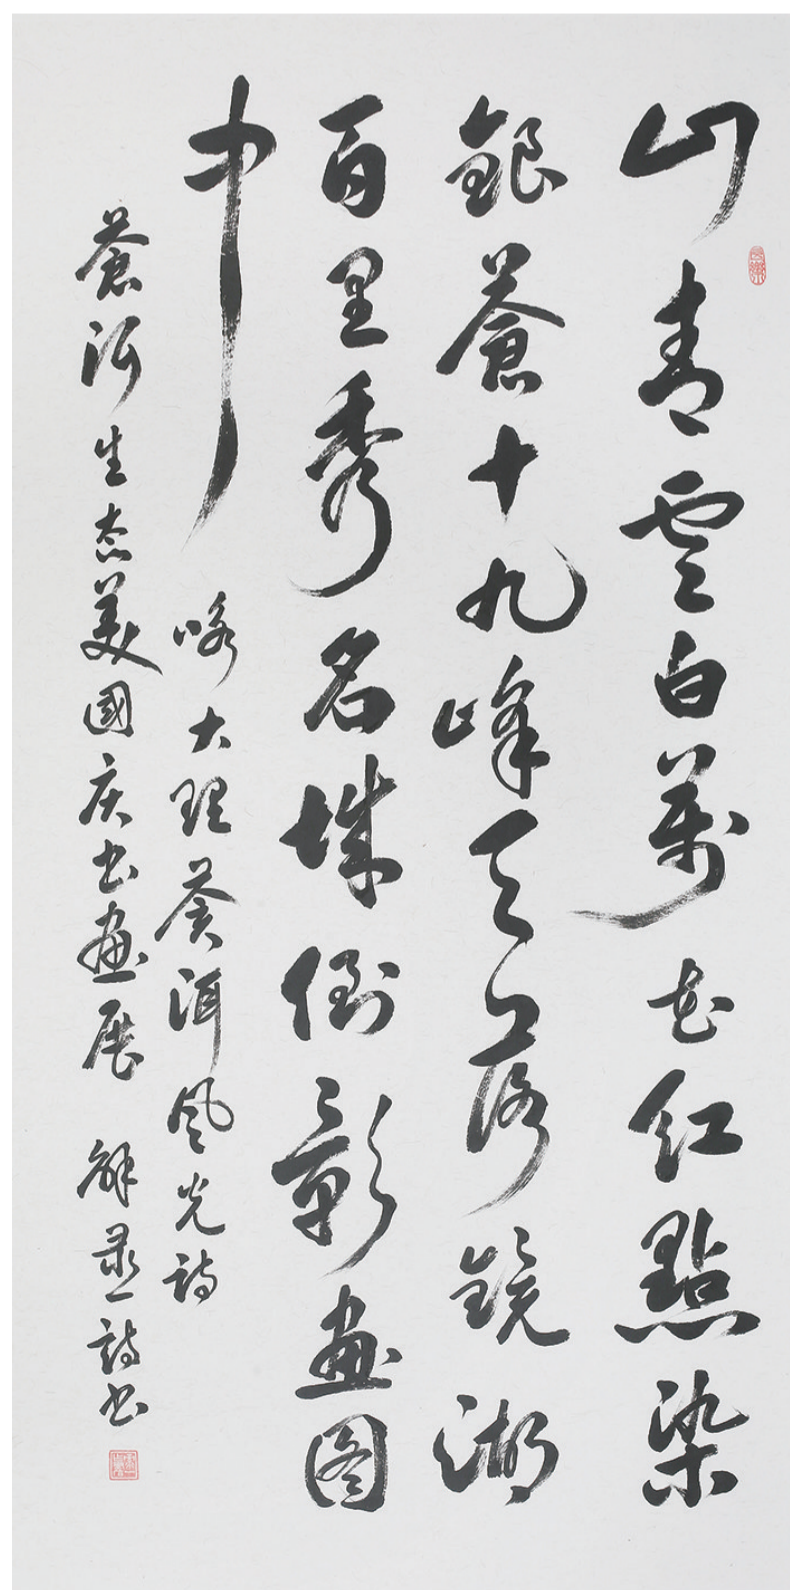 山青雲白萬花紅點染
銀蒼十九峰天落鏡湖
百里秀名城倒影畫图
中
咏大理蒼洱风光詩
蒼洱生态美國庆书畫展 解 詩书